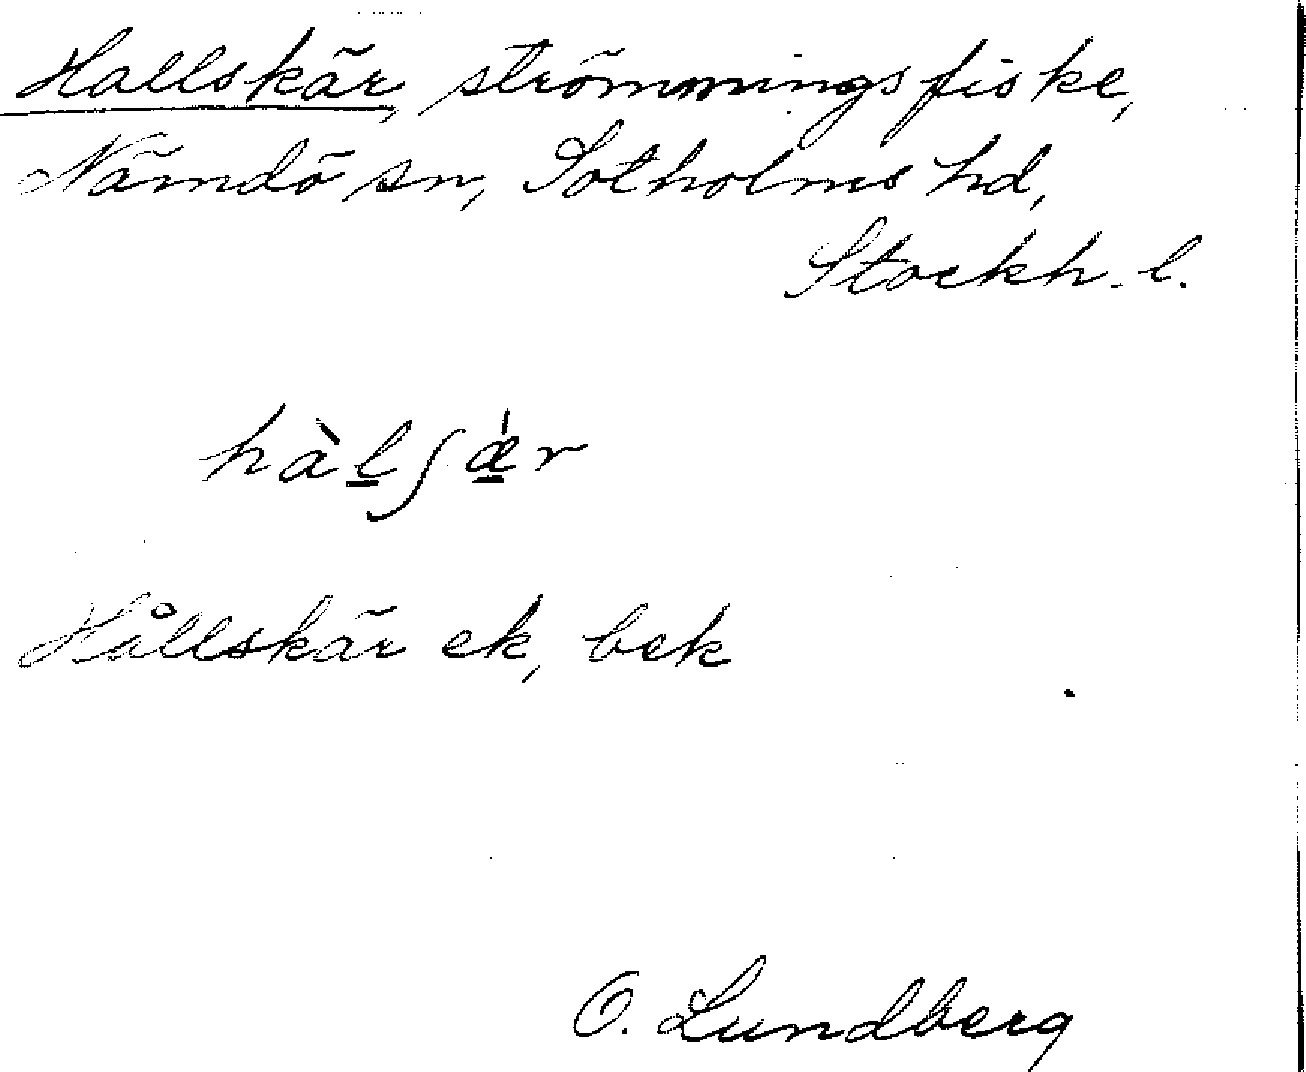 Hallskär, strömmingsfiske,
Nämdö sn, Sotholms hd,
Stockh. l.
hàlʃǽr
Hållskär ek, bek
O. Lundberg